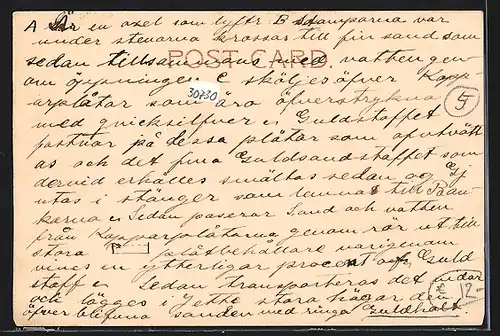 A Är en axel som lyftr B stamparna var
under stenarna krossas till fin sand som
POST CARD.
sedan tillsammans med vatten gen
om öppningen C sköljes öfver Kopp
30730
arplåtar som äro öfverstrykna
5
med quicksilfver o Guldstoffet
fastnar på dessa plåtar som afutvätt
as och det fina Guldsandstoffet som
dervid erhålles smältas sedan og Gj
utas i stänger som lemnas till Baan
karna o Sedan paserar Sand och vatten
från Kopparplåtarna genom rör ut till
stora plåtbehållare varigenom
vines en ytterligar procent af Guld
stoff o Sedan transporteras det undar
och lägges i Jette stora högar den
12-
öfverblifvna sanden med ringa Guldhalt.